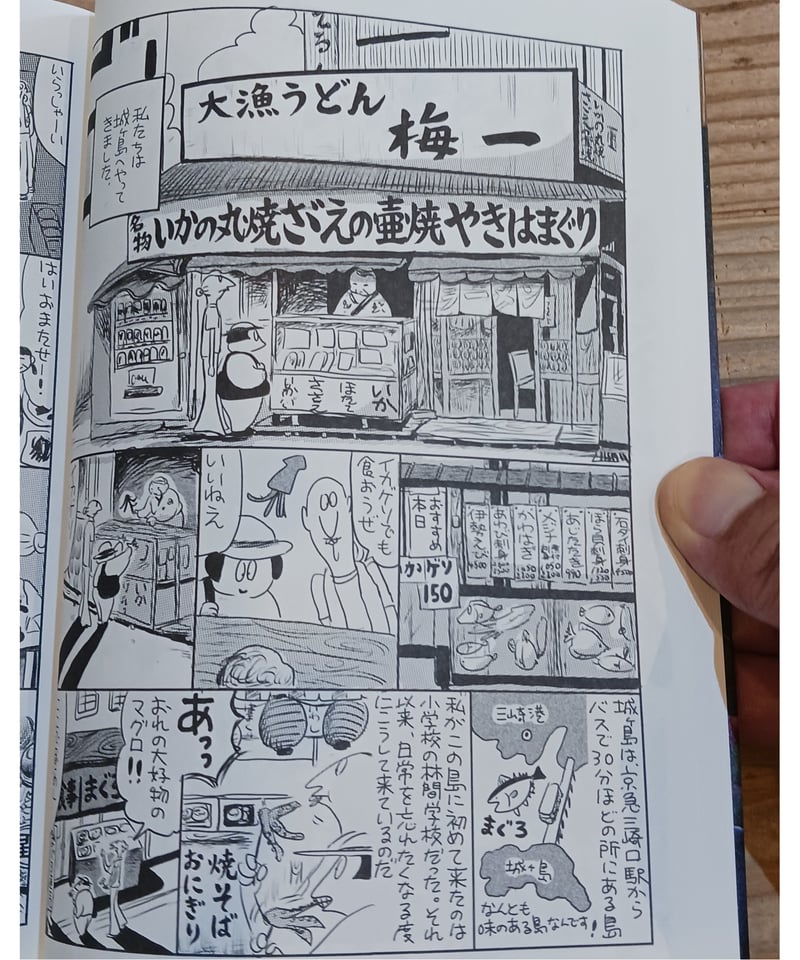 いらっしゃーい
はいおまたせー!!
私たちは
城ヶ島へやって
きました。
大漁うどん
梅一
名物
いかの丸焼
さざえの壷焼
やきはまぐり
いか
ほたて
さざえ
本日
おすすめ
いかゲソ
150
石ダイ刺身
あじたたき
メンチ
かわはぎ
あわび刺身
伊勢えび
イカゲソでも
食おうぜ
いいねえ
いか
城ヶ島は京急三崎口駅から
バスで30分ほどの所にある島
三崎港
まぐろ
城ヶ島
なんとも
味のある島なんです!
私がこの島に初めて来たのは
小学校の林間学校だった。それ
以来、日常を忘れたくなる度
にこうして来ているのだ
あっっ
焼そば
おにぎり
おれの大好物の
マグロ!!
まぐろ